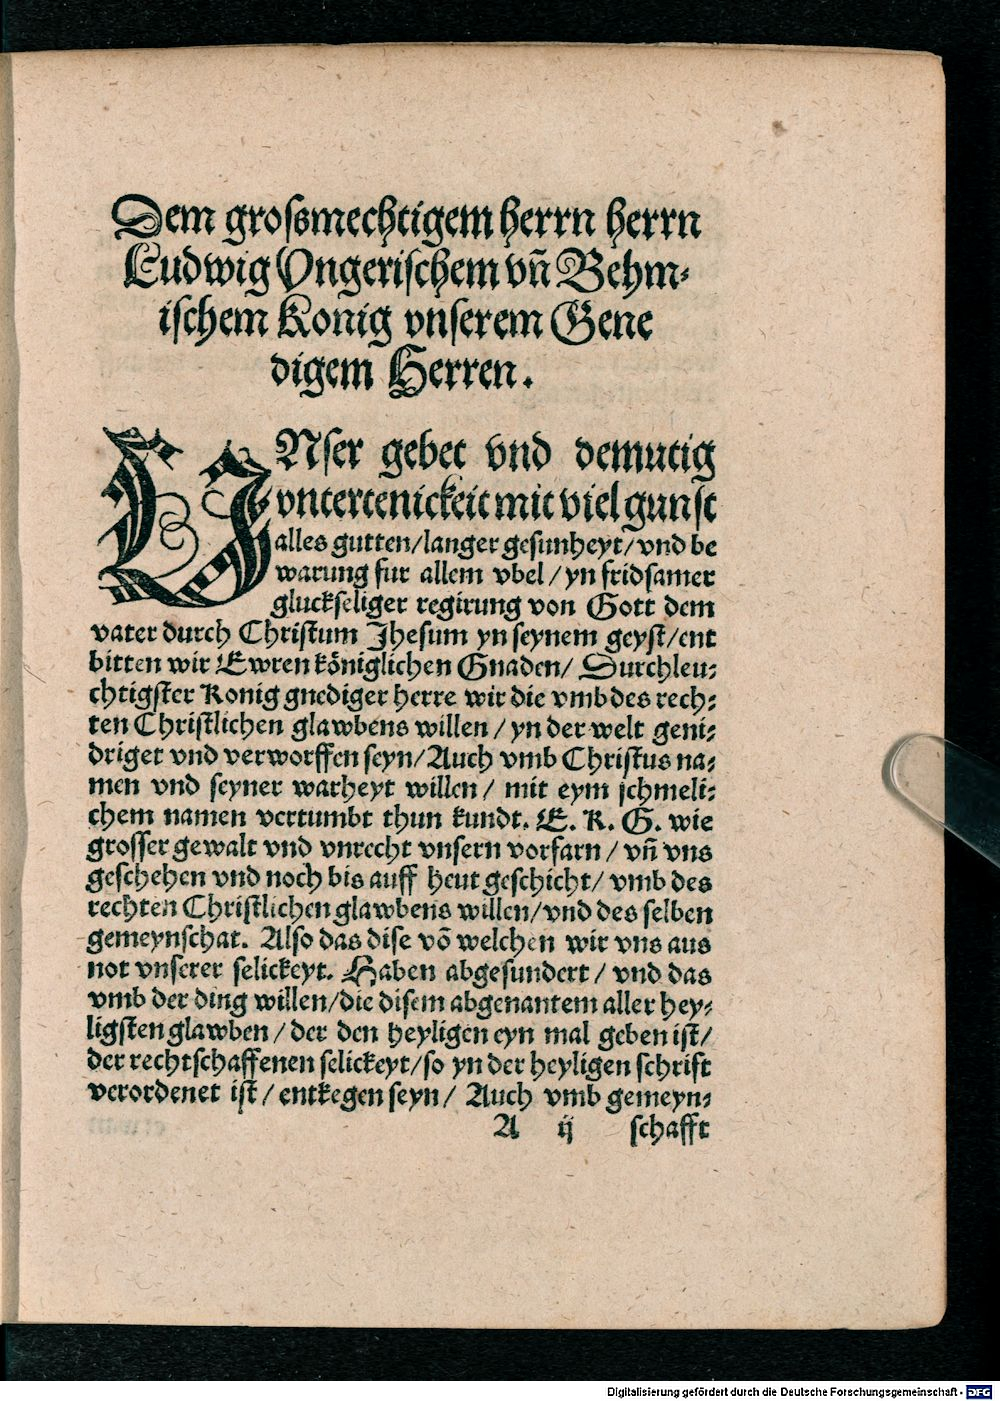 Dem grossmechtigem herrn herrn
Ludwig Ungerischem vñ Behm⸗
ischem Konig vnserem Gene
digem Herren.
UNser gebet vnd demutig
vntertenickeit mit viel gunst
alles gutten/langer gesunheyt/vnd be
warung fur allem vbel/yn fridsamer
gluckseliger regirung von Gott dem
vater durch Christum Jhesum yn seynem geyst/ent
bitten wir Ewren königlichen Gnaden/ Durchleu⸗
chtigster Konig gnediger herre wir die vmb des rech⸗
ten Christlichen glawbens willen/yn der welt geni⸗
driget vnd verworffen seyn/Auch vmb Christus na⸗
men vnd seyner warheyt willen/ mit eym schmeli⸗
chem namen vertumbt thun kundt. E. K. G. wie
grosser gewalt vnd vnrecht vnsern vorfarn/vñ vns
geschehen vnd noch bis auff heut geschicht/vmb des
rechten Christlichen glawbens willen/vnd des selben
gemeynschat. Also das dise võ welchen wir vns aus
not vnserer selickeyt. Haben abgesundert/vnd das
vmb der ding willen/die disem abgenantem aller hey⸗
ligsten glawben/der den heyligen eyn mal geben ist/
der rechtschaffenen selickeyt/so yn der heyligen schrift
verordenet ist/entkegen seyn/ Auch vmb gemeyn⸗
A ij schafft
Digitalisierung gefördert durch die Deutsche Forschungsgemeinschaft - DFG